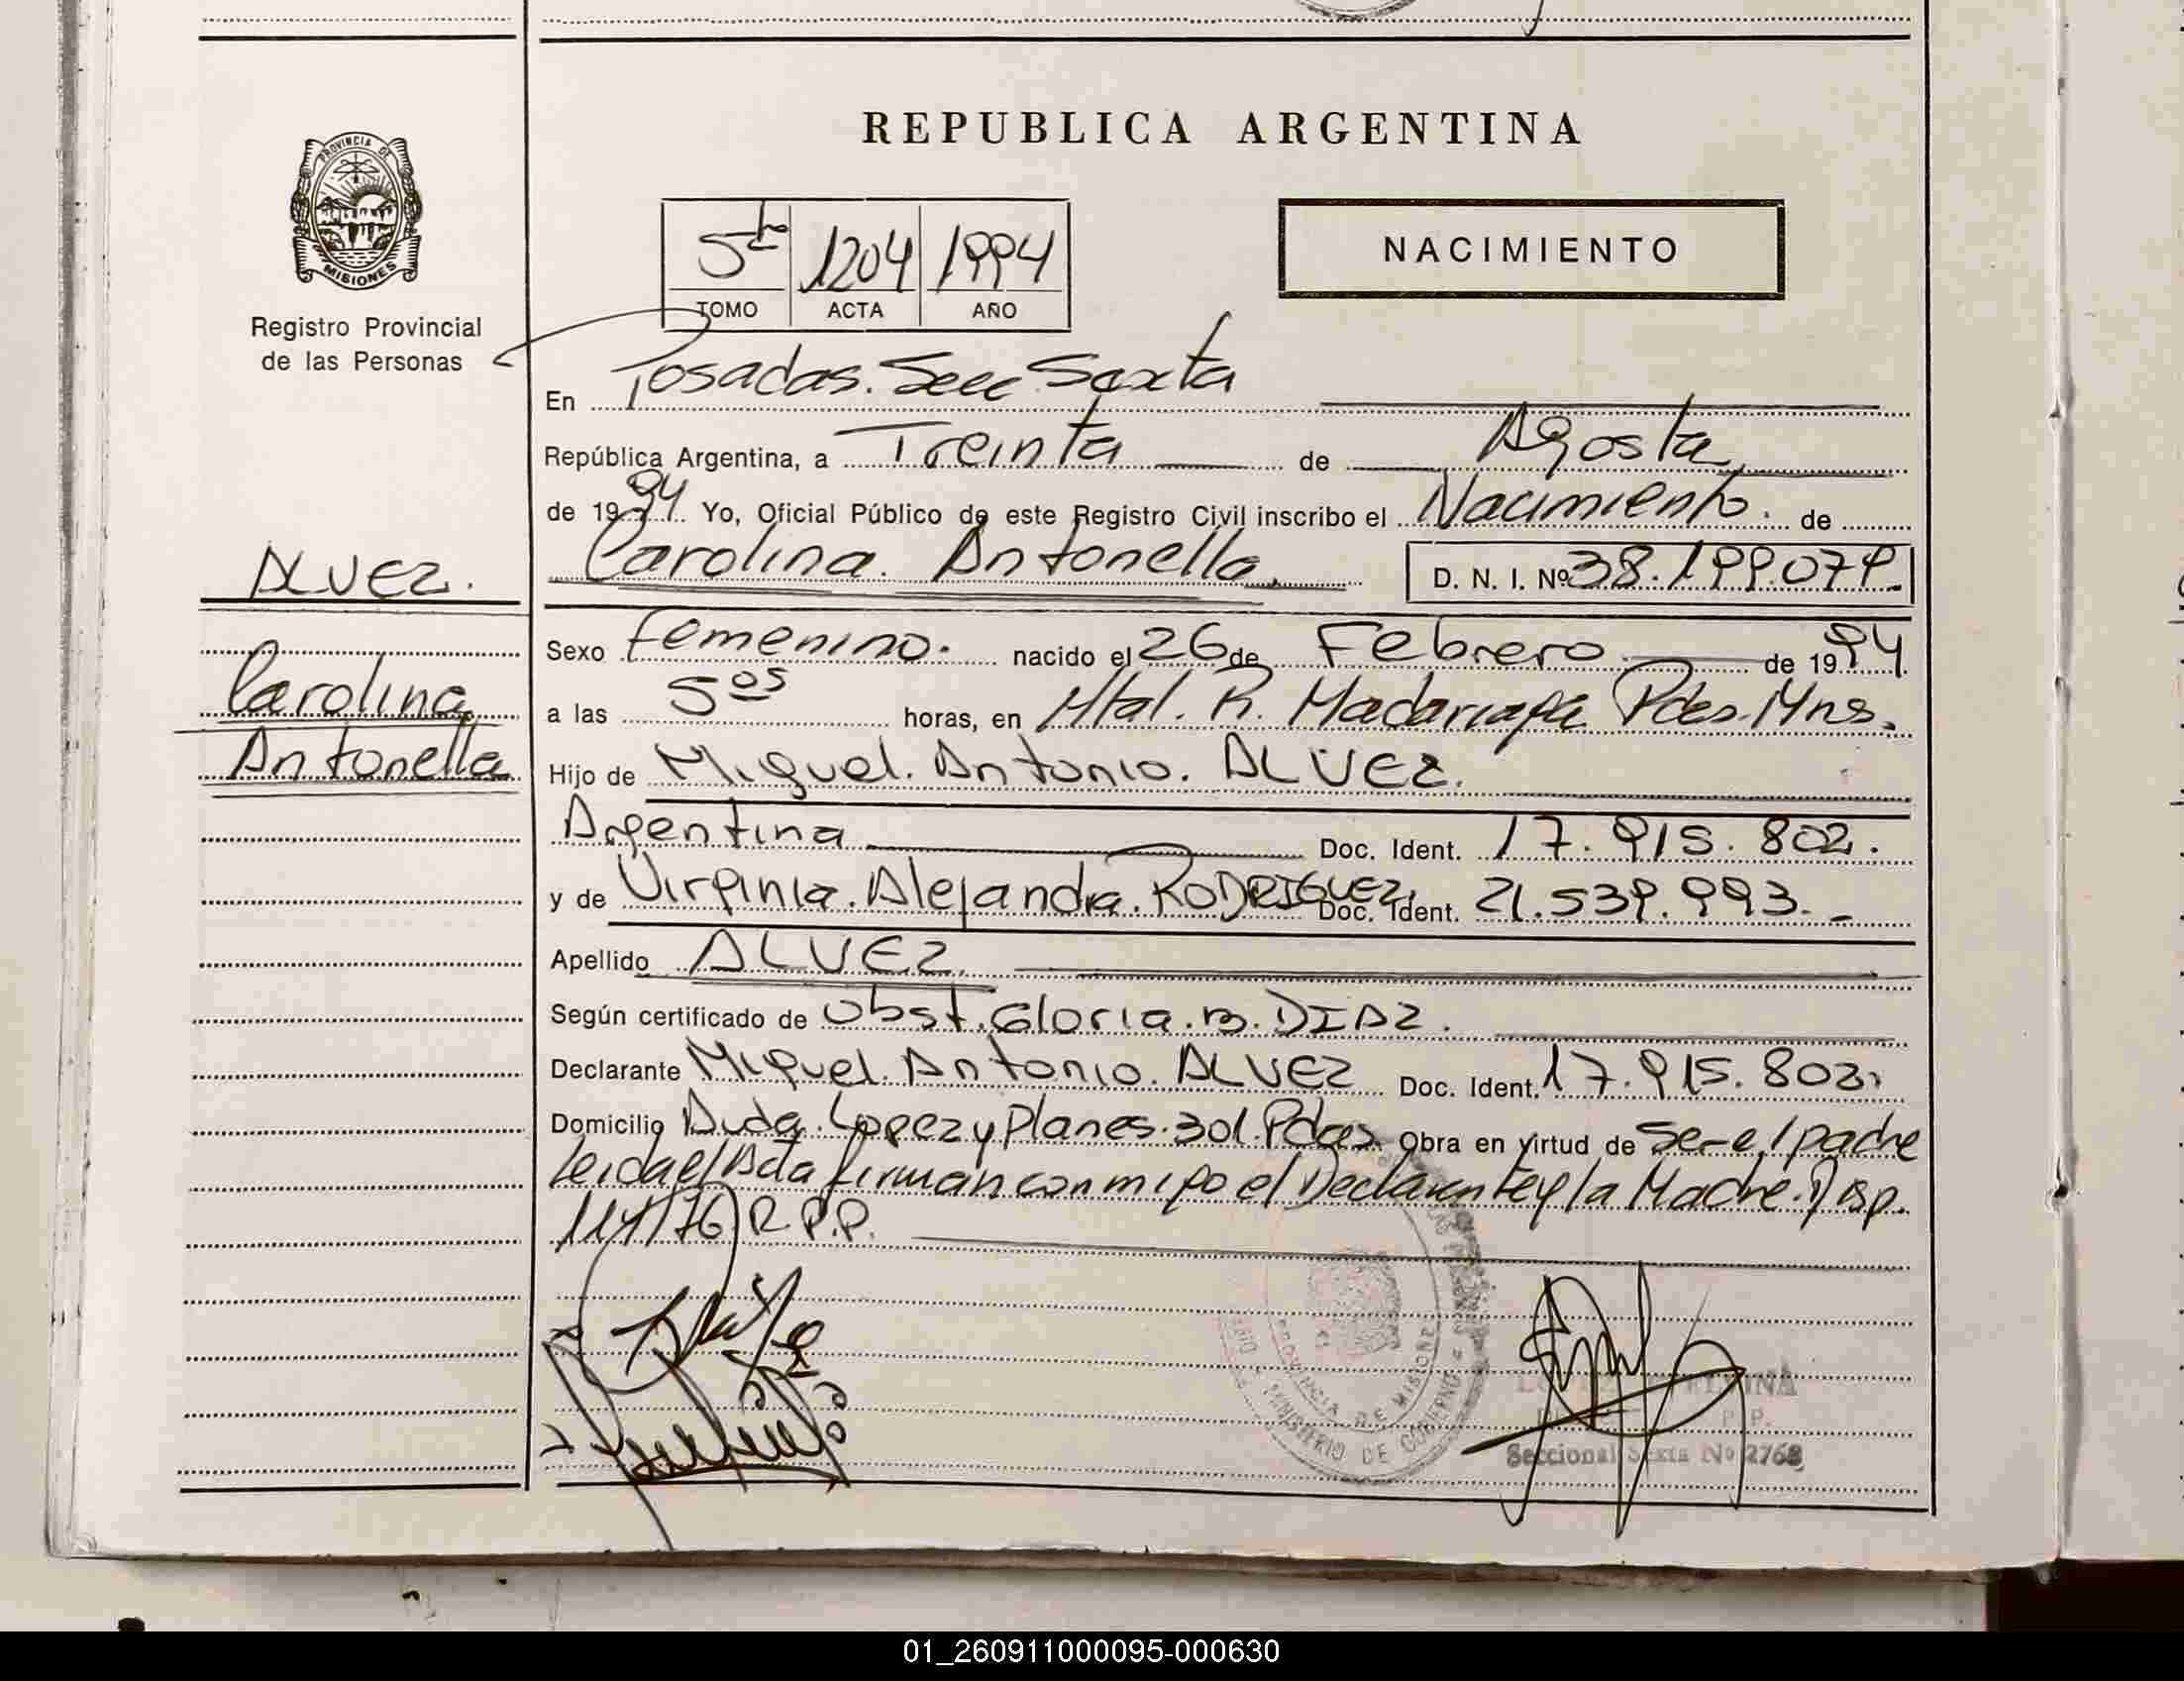 REPUBLICA ARGENTINA
PROVINCIA DE
MISIONES
Registro Provincial
de las Personas
5to 1204 1994
TOMO ACTA AÑO
NACIMIENTO
En Posadas. Secc Sexta
República Argentina, a Treinta de Agosto
de 1994 Yo, Oficial Público de este Registro Civil inscribo el Nacimiento. de
Carolina. Antonella. D. N. I. Nº 38.199.079.
ALVEZ.
Carolina
Antonella
Sexo Femenino. nacido el 26 de Febrero de 1994
a las 5 05 horas, en Htal. R. Madariaga Pdas. Mns.
Hijo de Miguel. Antonio. ALVEZ.
Argentina Doc. Ident. 17.915.802.
y de Virginia. Alejandra. RODRIGUEZ. Doc. Ident. 21.539.993.
Apellido ALVEZ
Según certificado de Obst. Gloria. B. DIAZ.
Declarante Miguel. Antonio. ALVEZ Doc. Ident. 17.915.802.
Domicilio Avda. Lopez y Planes. 301. Pdas. Obra en virtud de Ser el padre
Leida el Acta firman conmigo el Declarante y la Madre. Disp.
114/76 R.P.P.
PROVINCIA DE MISIONES
MINISTERIO DE GOBIERNO
Seccional Sexta Nº 2768
01_260911000095-000630